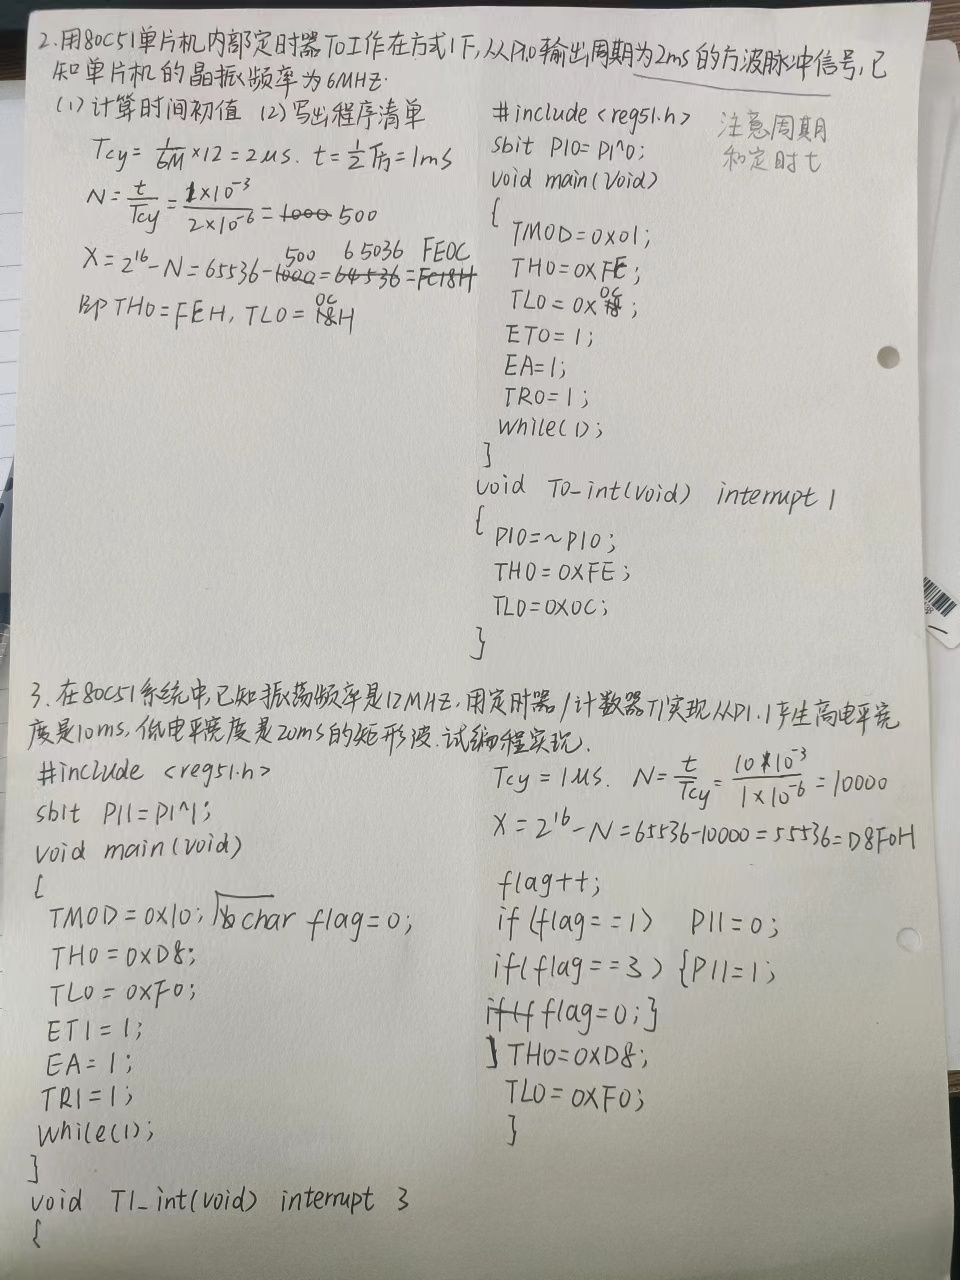 2.用80C51单片机内部定时器T0工作在方式1下,从P1.0输出周期为2ms的方波脉冲信号,已
知单片机的晶振频率为6MHz.
(1)计算时间初值 (2)写出程序清单
Tcy=1/6M×12=2us. t=1/2T方=1ms
N=t/Tcy=1×10^-3/2×10^-6=1000 500
500 65036 FE0C
X=2^16-N=65536-1000=64536=FC18H
即TH0=FEH, TL0=0CH
#include <reg51.h>
sbit P10=P1^0;
void main(void)
{
TMOD=0x01;
TH0=0XFE;
TL0=0X0C;
ET0=1;
EA=1;
TR0=1;
while(1);
}
void T0_int(void) interrupt 1
{
P10=~P10;
TH0=0XFE;
TL0=0X0C;
}
注意周期
和定时t
3.在80C51系统中,已知振荡频率是12MHz,用定时器/计数器T1实现从P1.1产生高电平宽
度是10ms,低电平宽度是20ms的矩形波.试编程实现.
#include <reg51.h>
sbit P11=P1^1;
void main(void)
{
TMOD=0X10; char flag=0;
TH0=0XD8;
TL0=0XF0;
ET1=1;
EA=1;
TR1=1;
while(1);
}
void T1_int(void) interrupt 3
{
Tcy=1us. N=t/Tcy=10×10^-3/1×10^-6=10000
X=2^16-N=65536-10000=55536=D8F0H
flag++;
if(flag==1) P11=0;
if(flag==3) {P11=1;
if(f flag=0;}
} TH0=0XD8;
TL0=0XF0;
}